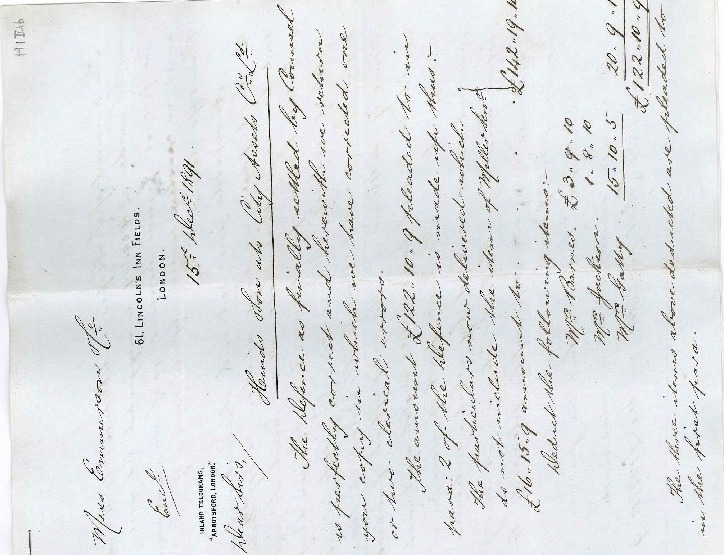 H1 Dib
Mess Emmerson &c
Encl
61, LINCOLN'S INN FIELDS.
LONDON.
15th Decr 1891.
INLAND TELEGRAMS,
"ABBOTSFORD, LONDON."
Dear Sirs,
Hands Ston ats City Assets Co Ld
The Defence as finally settled by Counsel
is perfectly correct and herewith we return
your copy in which we have corrected one
or two clerical errors.
The amount £122.10.9 pleaded to in
para: 2 of the Defence is made up thus:-
The particulars now delivered which
do not include the item of
£16.15.9 amounted to £142.19.10
Deduct the following items:-
Mrs Barnes £3.9.10
Mrs Jackson 1.8.10
Mrs Gatty 15.10.5 20.9.1
£122.10.9
The three items above deducted are pleaded to
in the first para.